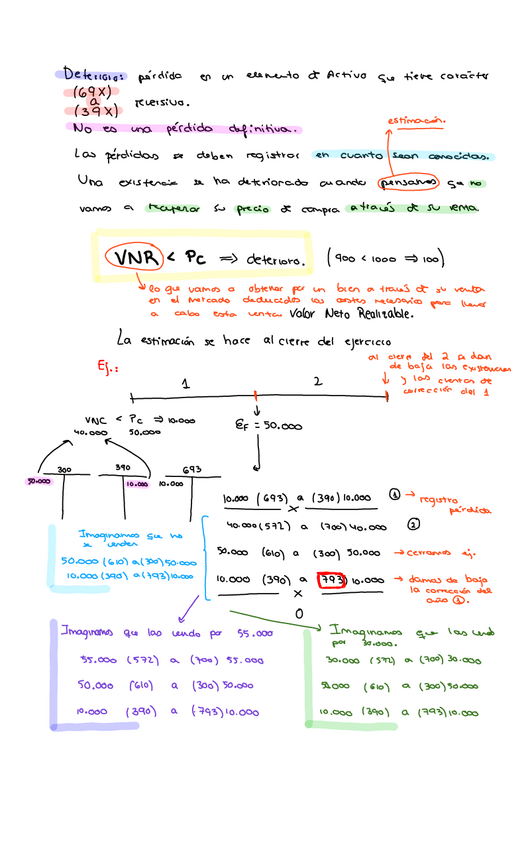 Deterioro: pérdida en un elemento d Activo que tiene carácter
(69X)
a
(39X)
reversivo.
No es una pérdida definitiva.
estimación.
Las pérdidas se deben registrar en cuanto sean conocidas.
Una existencia se ha deteriorado cuando pensamos que no
vamos a recuperar su precio d compra a través d su venta
VNR < Pc ⇒ deterioro. (900 < 1000 ⇒ 100)
lo que vamos a obtener por un bien a través d su venta
en el mercado deducidos los costes necesarios para llevar
a cabo esta venta. Valor Neto Realizable.
La estimación se hace al cierre del ejercicio
Ej.:
al cierre del 2 se dan
de baja las existencias
y las cuentas de
corrección del 1
1 2
VNC < Pc ⇒ 10.000
40.000 50.000
Ef = 50.000
300 390 693
50.000 10.000 10.000
10.000 (693) a (390) 10.000 ① → registro
pérdida
x
40.000 (572) a (700) 40.000 ②
50.000 (610) a (300) 50.000 → cerramos ej.
10.000 (390) a (793) 10.000 → damos de baja
la corrección del
año ①.
x
0
Imaginamos que no
se venden
50.000 (610) a (300) 50.000
10.000 (390) a (793) 10.000
Imaginamos que las vendo por 55.000
55.000 (572) a (700) 55.000
50.000 (610) a (300) 50.000
10.000 (390) a (793) 10.000
Imaginamos que las vendo
por 30.000.
30.000 (572) a (700) 30.000
50.000 (610) a (300) 50.000
10.000 (390) a (793) 10.000